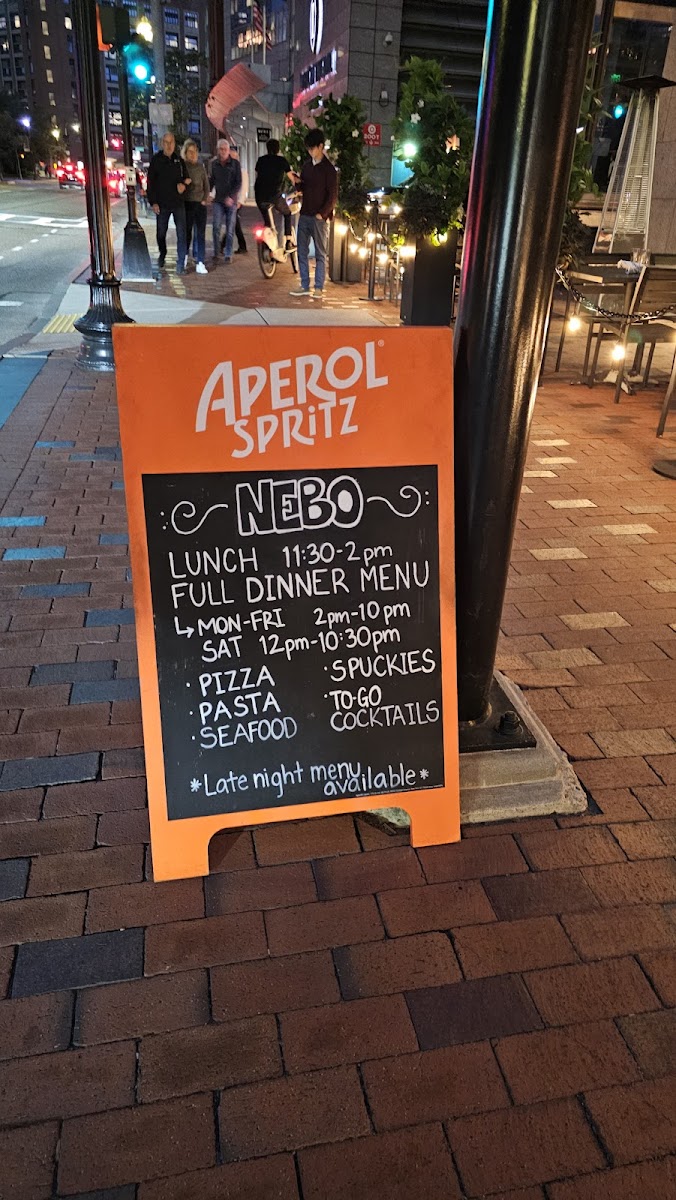 APEROL®
SPRITZ
NEBO
LUNCH 11:30-2pm
FULL DINNER MENU
↳ MON-FRI 2pm-10pm
SAT 12pm-10:30pm
· PIZZA
· PASTA
· SEAFOOD
· SPUCKIES
· TO-GO
COCKTAILS
*Late night menu
available*